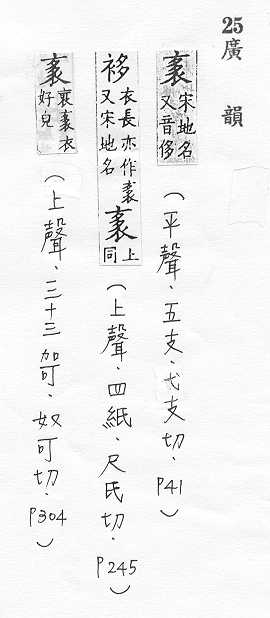 25廣韻
袲宋地名又音侈(平聲.五支.弋支切.P41)
袳衣長亦作袲又宋地名袲上同(上聲.四紙.尺氏切.P245)
袲袲衣好皃(上聲.三十三哿.奴可切.P304)